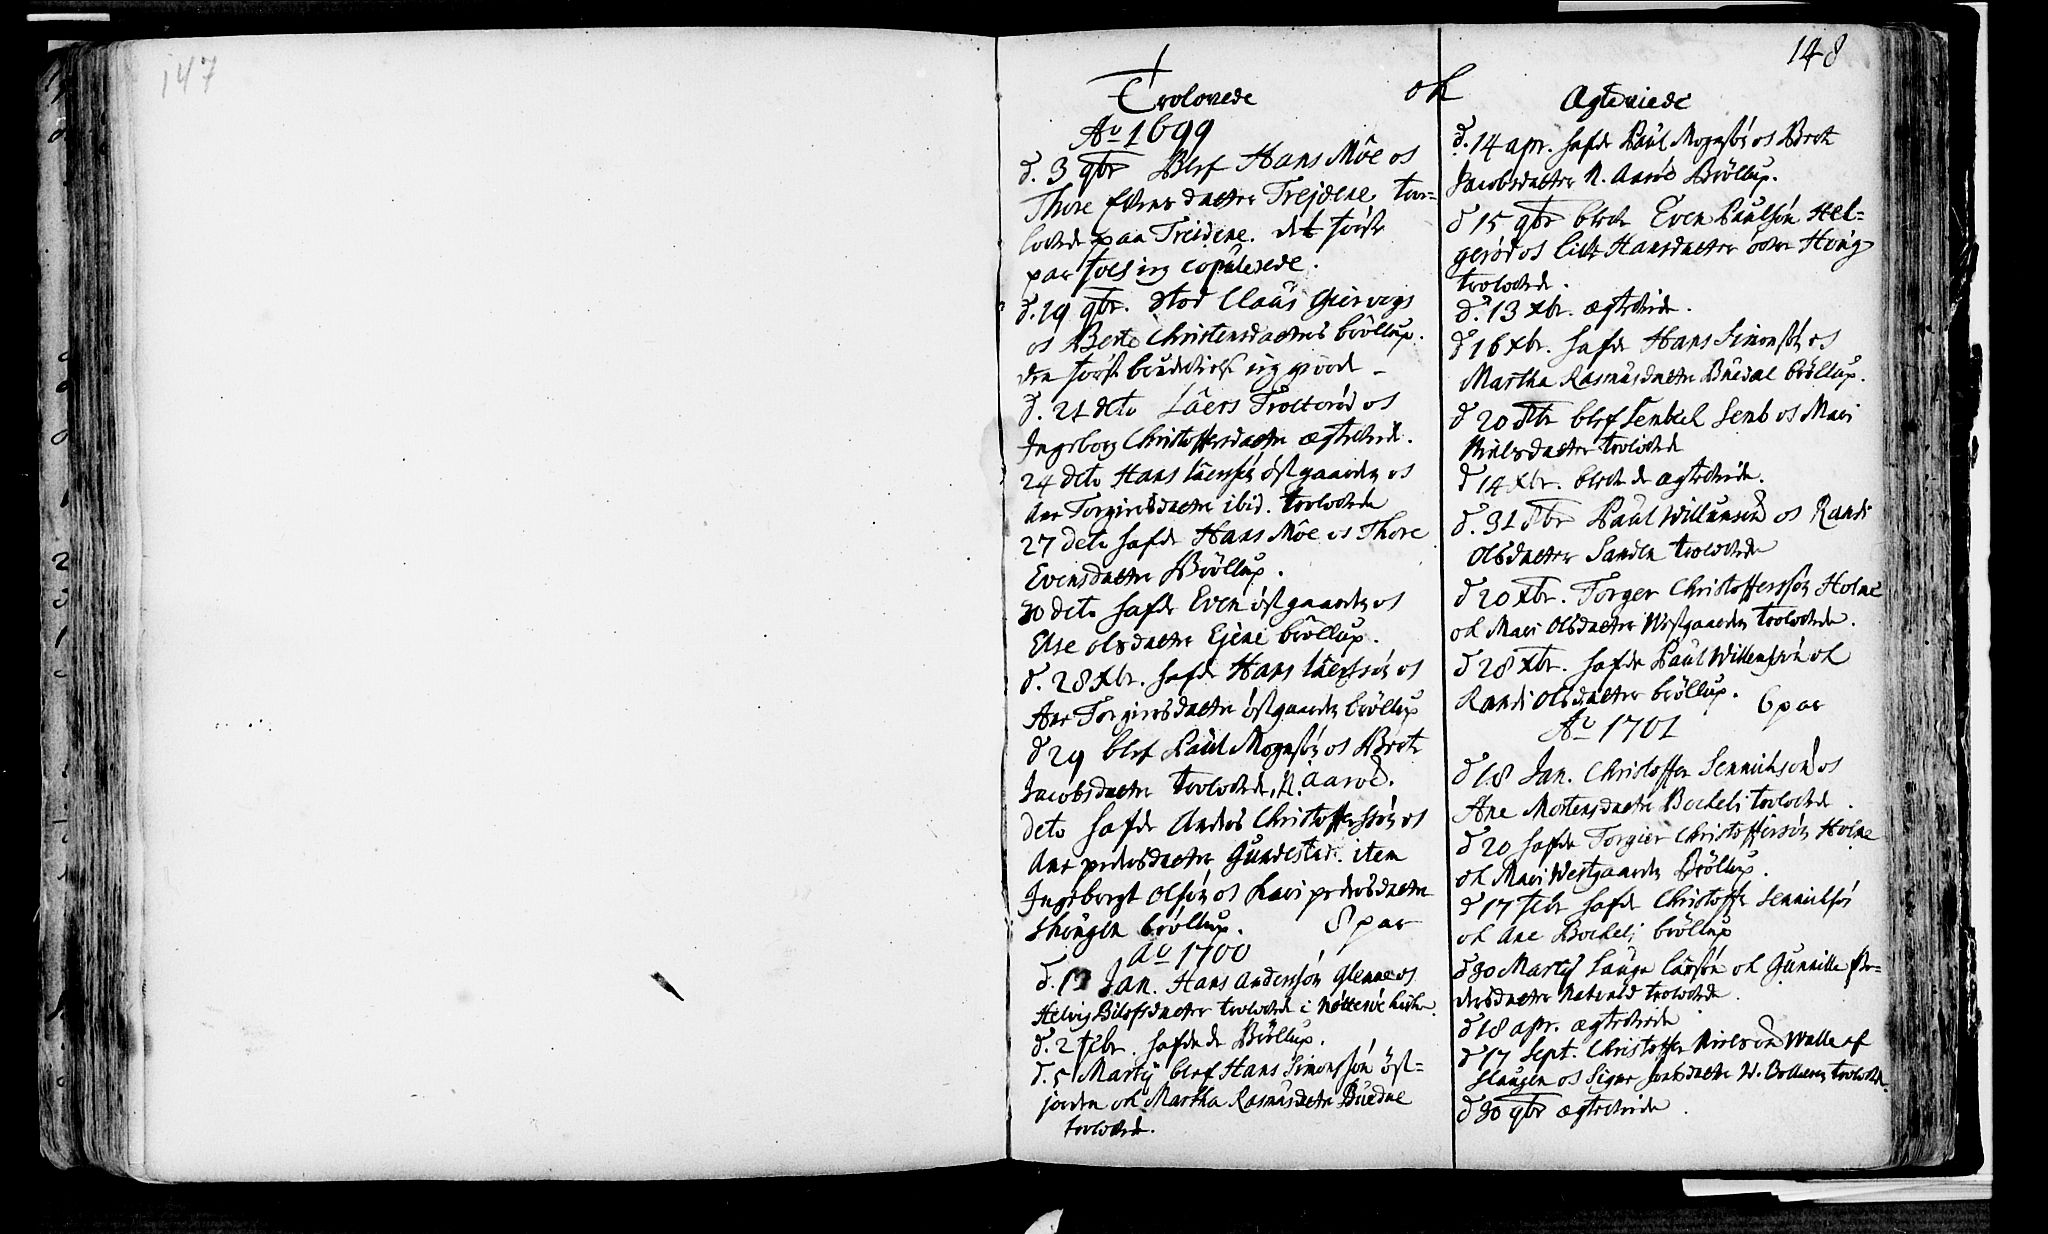 147
148
Trolovede ok Ægteviede
Ao 1699
d. 3 9br Blef Hans Môe os
Thore Evens datter Trejdene tro-
lovede paa Treidene. det første
par som jeg copulerede.
d. 19 9br. stod Claus
os Berte Christensdatters bröllup.
den første brudevielse ieg giorde
d. 21 dito Laers Trolterød os
Ingeborg Christoffersdatter ægteviede.
24 dito Hans Laersøn östgaarden os
Ane Torgiersdatter ibid. trolovede
27 dito hafde Hans Môe os Thore
Evensdatter Bröllup.
30 dito hafde Even östgaarden os
Else olsdatter Ejene bröllup.
d. 28 Xbr. hafde Hans Laersøn os
Ane Torgiersdatter östgaarden bröllup
d 29 blef Paul Mognsøn os Berte
Jacobsdatter trolovede, N. aarøe.
dito hafde Anders Christofferssøn os
Ane pedersdatter Gundestad. item
Ingebregt olsøn os Kari pedersdatter
bröllup. 8 par
Ao 1700
d. 12 Jan. Hans Andersøn Glenne os
Helvig datter trolovede i Nötteröe kirke.
d. 2 febr. hafde de Bröllup.
d. 5 Martij blef Hans Simonssøn öst-
jorden ok Martha Rasmusdatter Buedal
trolovede.
d. 14 apr. hafde Paul Mognssøn os Berte
Jacobsdatter N. Aaröe Bröllup.
d 15 9br bleve Even Paulsøn Hel-
gerød os Lisbe Hansdatter over Hoúg
trolovede.
d. 13 xbr. ægteviede.
d 16 xbr. hafde Hans Simonssøn os
Martha Rasmusdatter Buedal bröllup.
d 20 8br blef Lem os Mari
Nielsdatter trolovede
d 14 Xbr. bleve de ægteviede.
d. 31 8br Paul Willumsen os Randi
Olsdatter Sanden trolovede
d 20 xbr. Torger Christofferssøn Holme
ok Mari Olsdatter Westgaarden trolovede.
d 28 xbr. hafde Paul Willumssøn ok
Randi olsdatter bröllup. 6 par
Ao 1701
d 18 Jan. Christoffer os
Ane Mortensdatter Bockeli trolovede.
d 20 hafde Torgier Christoffersøn Holme
ok Mari Westgaarden Bröllup.
d 17 febr hafde Christoffer
ok Ane Bockeli bröllup
d 30 Martij Lauge Larsøn ok Gunnille Pe-
dersdatter trolovede.
d 18 apr. ægteviede
d 17 Sept. Christoffer Nielsøn Walle af
Slaugen os Signe datter W. Bolleren trolovede.
d 30 9br ægteviede.